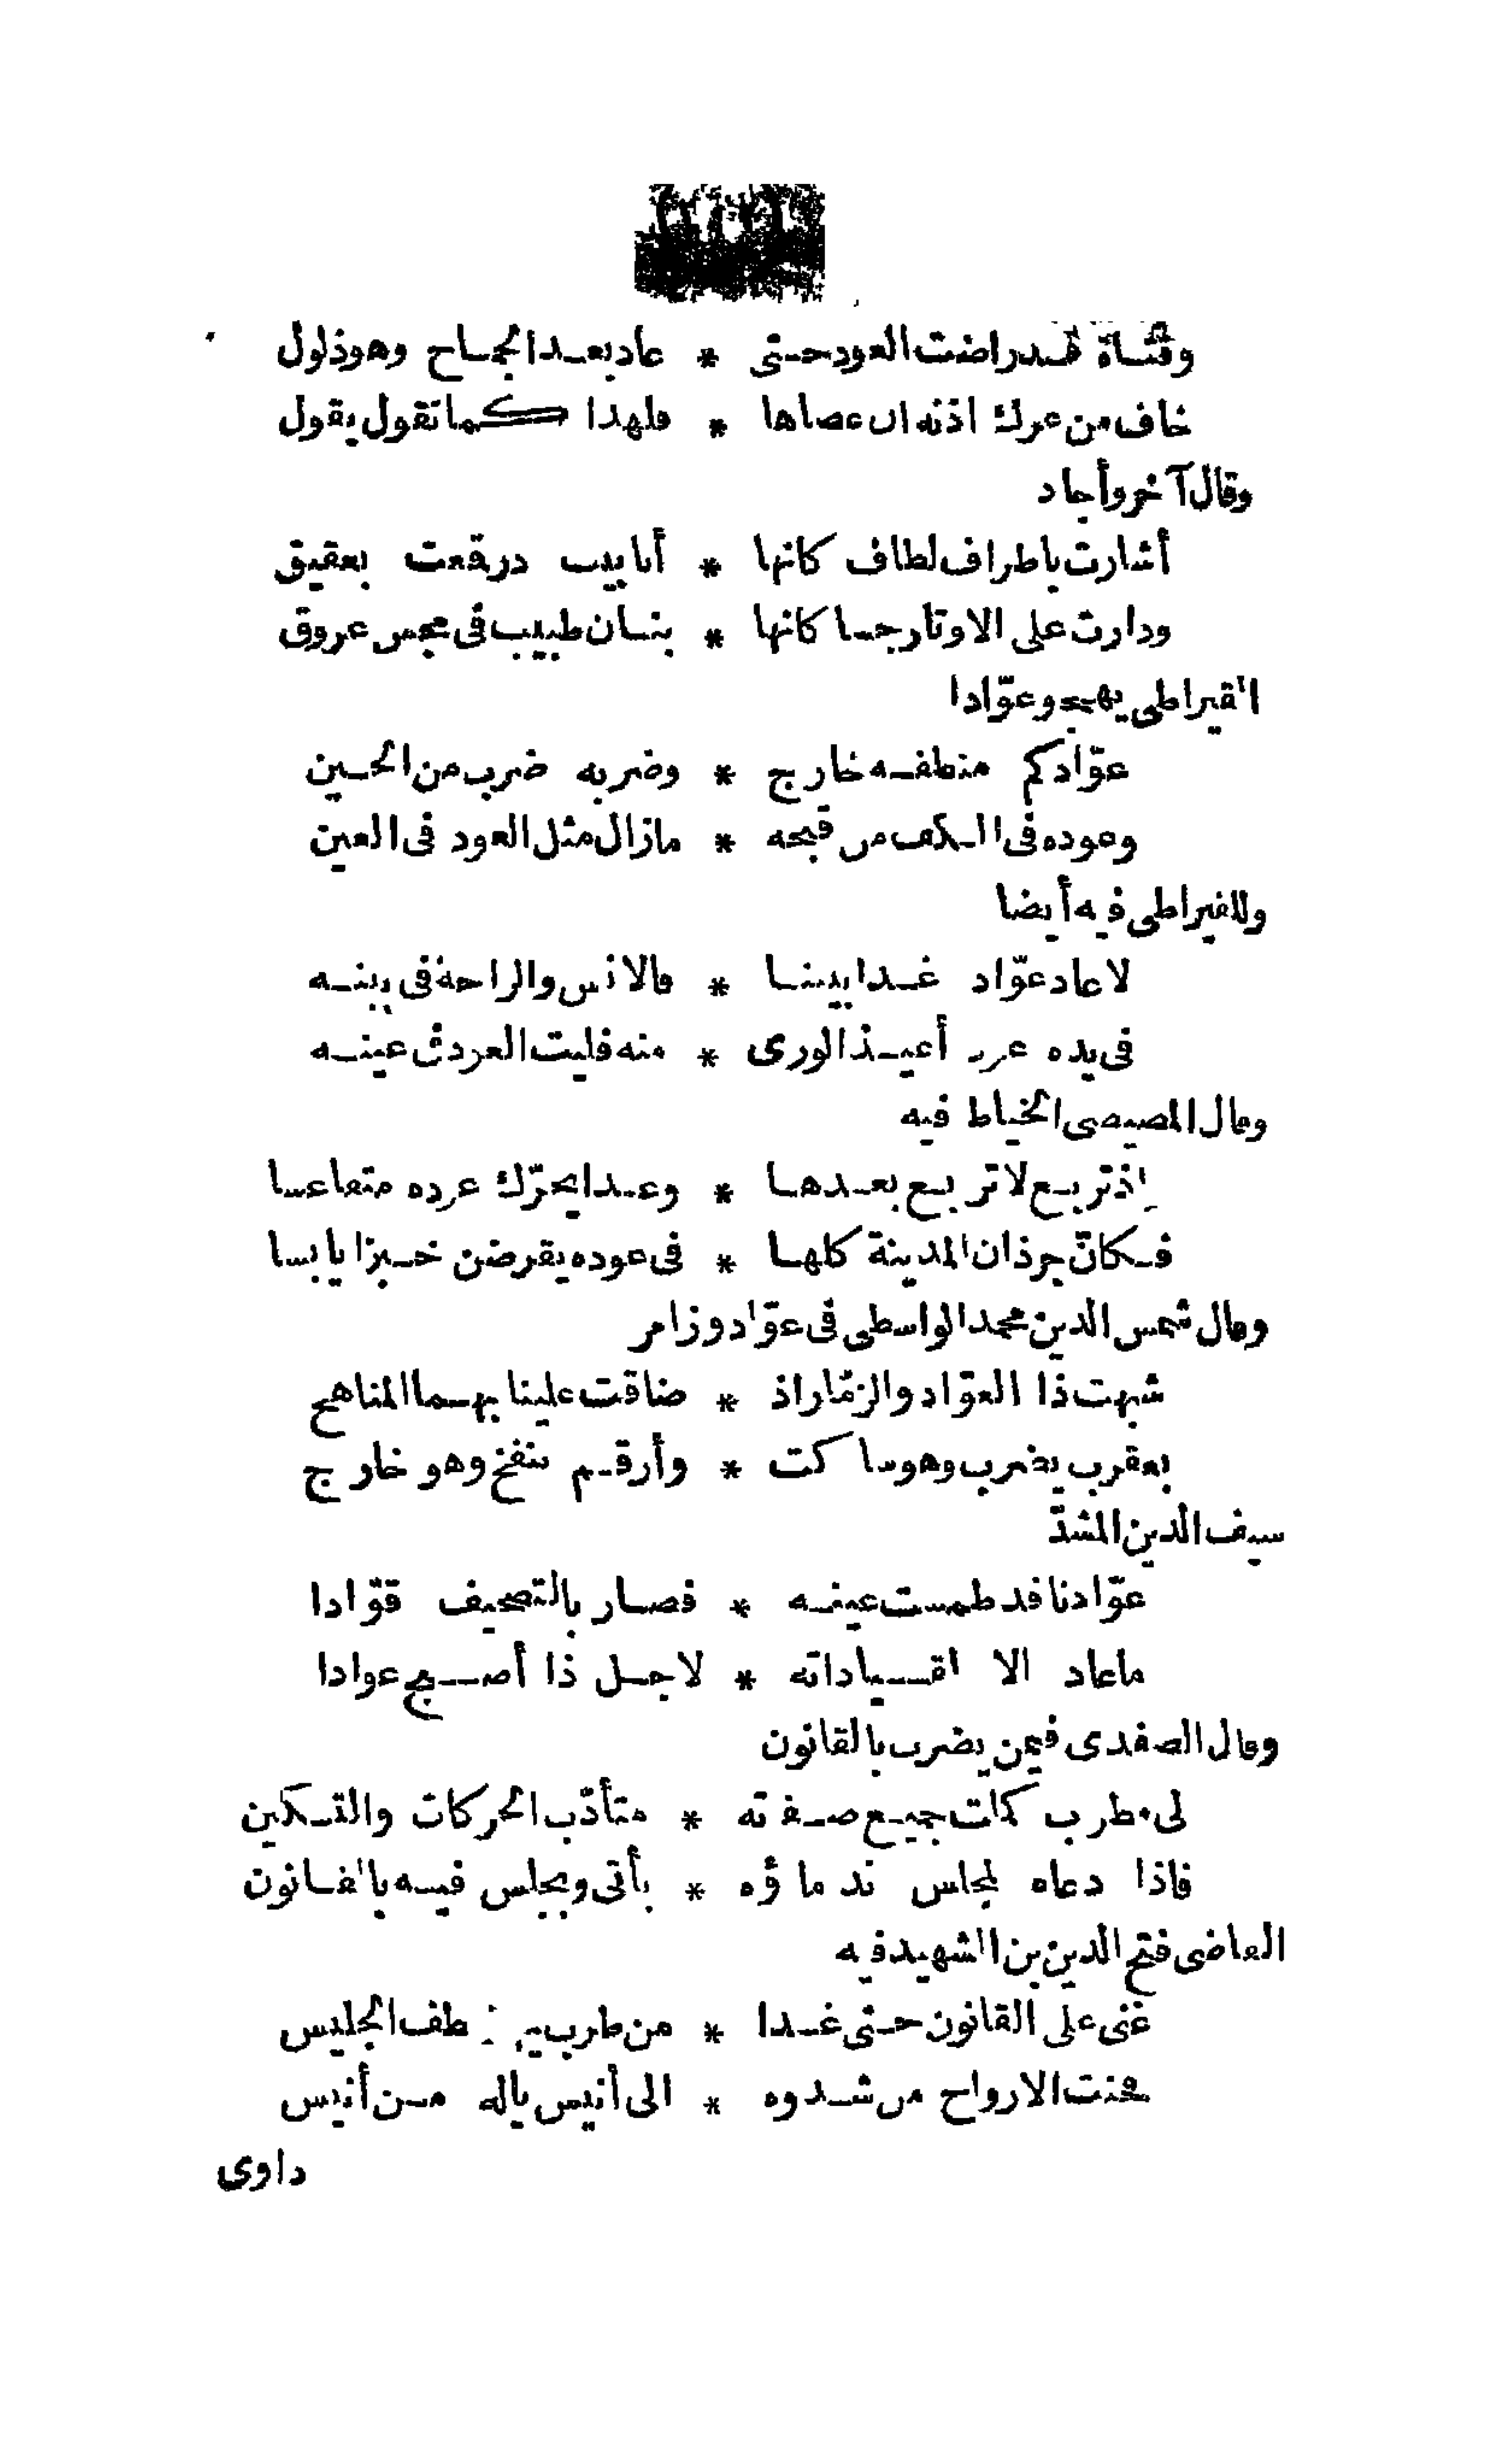 وفتاة قد راضت العود حتى * عاد بعد الجماح وهو ذلول
خاف من عرك اذنه ان عصاها * فلهذا كما تقول يقول
وقال آخر وأجاد
أشارت باطراف لطاف كانها * أنابيب در قمعت بعقيق
ودارت على الاوتار جسا كانها * بنان طبيب فى مجس عروق
القيراطى يهجو عوّادا
عوّادكم منطفه خارج * وضربه ضرب من الحين
وعوده فى الكف من قبحه * مازال مثل العود فى العين
وللقيراطى فيه أيضا
لا عاد عوّاد غدا بيننا * فالانس والراحة فى بينه
فى يده عود أعيذ الورى * منه فليت العود فى عينه
وقال المصيصى الخياط فيه
اذ تربع لا تربع بعدها * وغدا يحرّك عوده متقاعسا
فكانّ جرذان المدينة كلها * فى عوده يقرضن خبزا يابسا
وقال شمس الدين محمد الواسطى فى عوّاد وزامر
شبهت ذا العوّاد والزمّار اذ * ضاقت علينا بهما المناهج
بعقرب يضرب وهو ساكت * وأرقم ينفخ وهو خارج
سيف الدين المشدّ
عوّادنا قد طمست عينه * فصار بالتصحيف قوّادا
ماعاد الا لقياداته * لاجل ذا أصبح عوادا
وقال الصفدى فيمن يضرب بالقانون
لى مطرب كملت جميع صفاته * متأدّب الحركات والتسكين
فاذا دعاه لمجلس ندماؤه * يأتى ويجلس فيه بالقانون
القاضى فتح الدين بن الشهيد فيه
غنى على القانون حتى غدا * من طرب عطف الجليس
فحنت الارواح من شدوه * الى أنيس ياله من أنيس
داوى